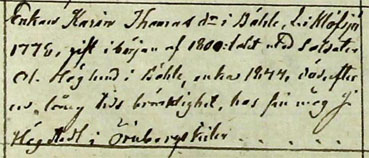 Enkan Karin Thomas dr i Böhle,
1778, gift i början af 1800-talet med Soldaten
Ol. Höglund i Böhle, enka 1844, död, efter
en lång tids bräcklighet, hos sin måg J
Högstedt i Örnbergs